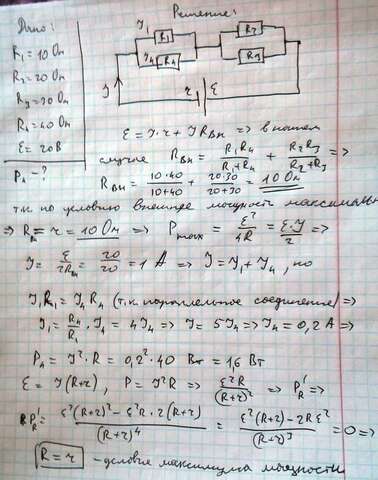 Дано:
R₁ = 10 Ом
R₂ = 20 Ом
R₃ = 30 Ом
R₄ = 40 Ом
ℰ = 20 В
P₄ - ?
Решение:
I₁ R₁ R₂
I₄ R₄ R₃
I r ℰ
ℰ = I·r + I R_вн => в нашем
случае R_вн = R₁R₄/(R₁+R₄) + R₂R₃/(R₂+R₃) =>
R_вн = 10·40/(10+40) + 20·30/(20+30) = 10 Ом
т.к. по условию внешняя мощность максимальна
=> R_вн = r = 10 Ом => P_max = ℰ²/4R = ℰ·I/2 =>
I = ℰ/2R_вн = 20/20 = 1 А => I = I₁ + I₄, но
I₁R₁ = I₄R₄ (т.к. параллельное соединение) =>
I₁ = R₄/R₁ · I₄ = 4I₄ => I = 5I₄ => I₄ = 0,2 А =>
P₄ = I²·R = 0,2²·40 Вт = 1,6 Вт
ℰ = I(R+r), P = I²R => ℰ²R/(R+r)² => P'_R =>
P'_R = (ℰ²(R+r)² - ℰ²R·2(R+r))/(R+r)⁴ = (ℰ²(R+r) - 2Rℰ²)/(R+r)³ = 0 =>
R = r - условие максимума мощности